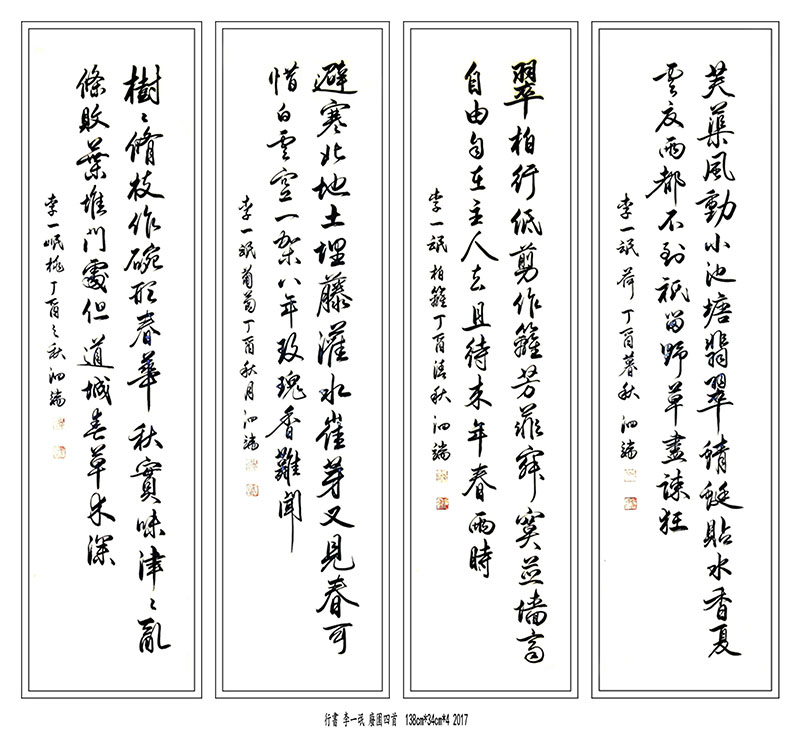 芙蕖風動小池塘翡翠蜻蜓貼水香夏
雲夏雨都不到祇留野草盡疎狂
李一氓 荷 丁酉暮秋 泗端
翠柏行低剪作籬芳菲寂寞並墻高
自由自在主人去且待来年春雨時
李一氓 柏籬 丁酉清秋 泗端
避寒北地土埋藤灌水崔芽又見春可
惜白雲空一架八年玫瑰香難聞
李一氓 葡萄 丁酉秋月 泗端
樹〻脩枝作碗形春華秋實味津〻亂
條敗葉堆門處但道城春草木深
李一氓 桃 丁酉之秋 泗端
行書 李一氓 廢園四首 138cm*34cm*4 2017